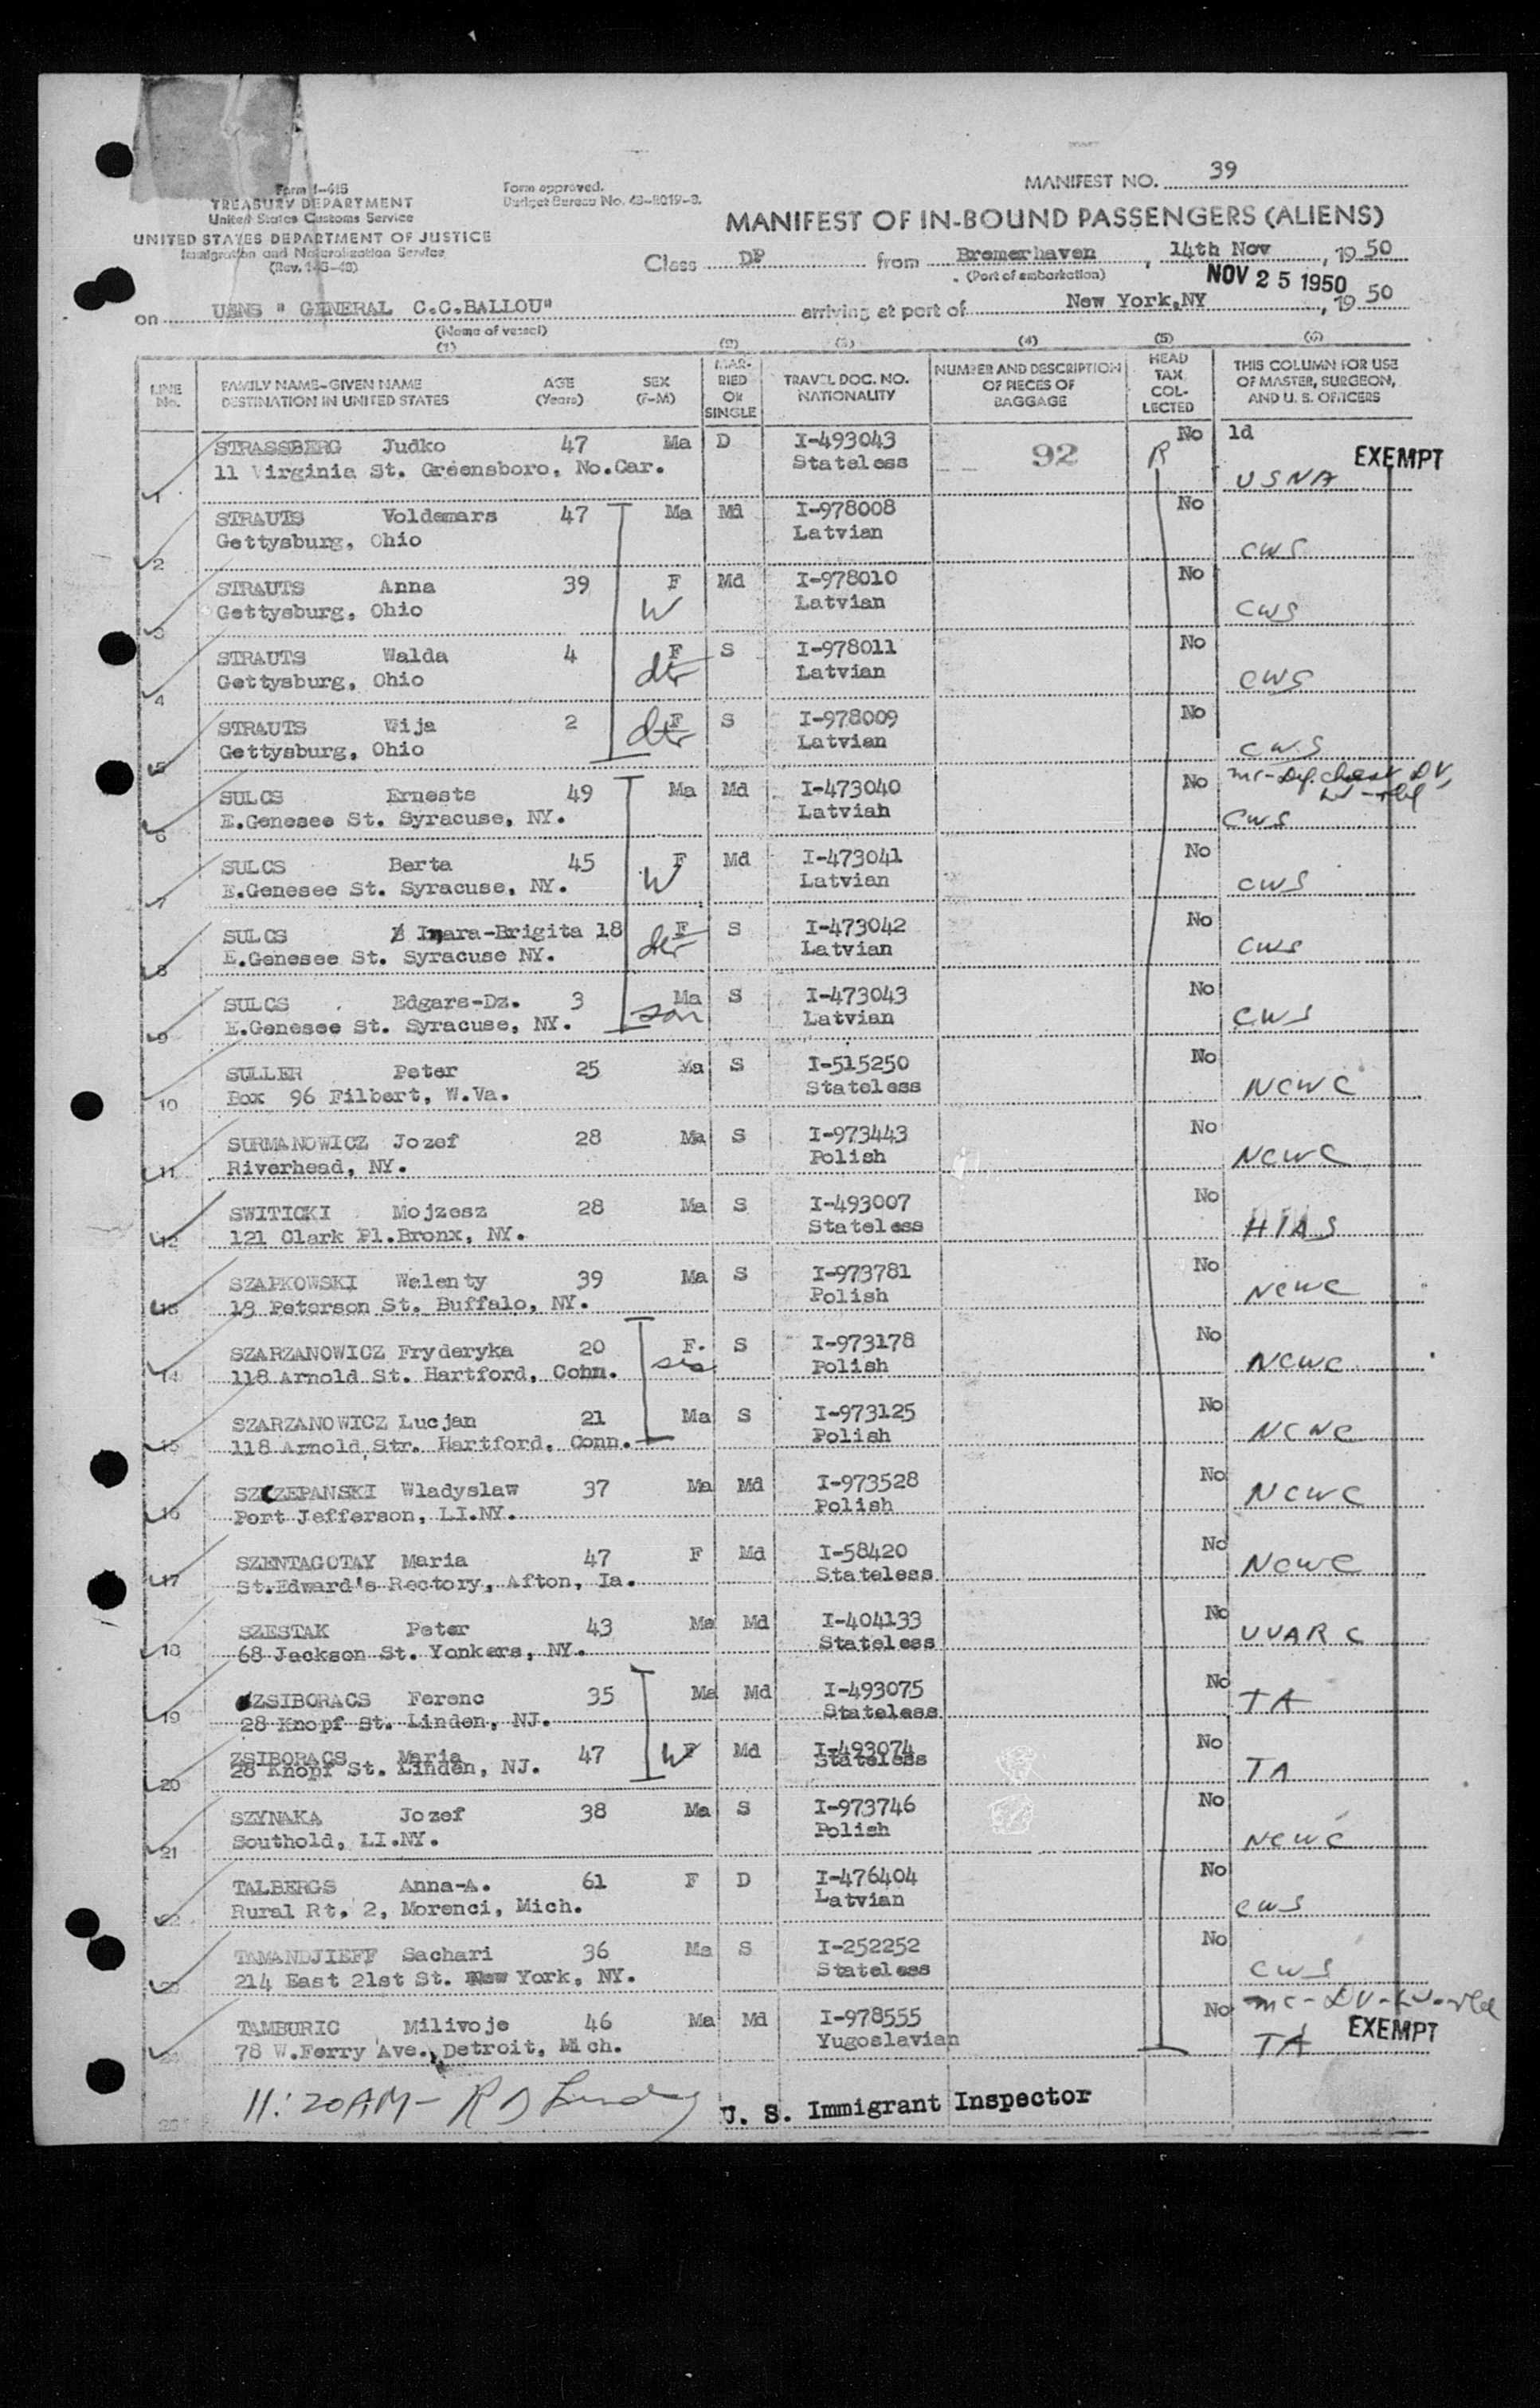 MANIFEST NO. 39
Form I-415
TREASURY DEPARTMENT
United States Customs Service
UNITED STATES DEPARTMENT OF JUSTICE
Immigration and Naturalization Service
Form approved.
Budget Bureau No. 43-R019-3.
MANIFEST OF IN-BOUND PASSENGERS (ALIENS)
Class DP from Bremerhaven, 14th Nov, 1950
(Port of embarkation)
NOV 25 1950
on USNS " GENERAL C.C.BALLOU" arriving at port of New York,NY, 1950
(Name of vessel)
(1) (2) (3) (4) (5) (6)
LINE No. FAMILY NAME-GIVEN NAME DESTINATION IN UNITED STATES AGE (Years) SEX (F-M) MARRIED OR SINGLE TRAVEL DOC. NO. NATIONALITY NUMBER AND DESCRIPTION OF PIECES OF BAGGAGE HEAD TAX COLLECTED THIS COLUMN FOR USE OF MASTER, SURGEON, AND U. S. OFFICERS
STRASSBERG Judko 47 Ma D I-493043 92 R No 1d EXEMPT
1 11 Virginia St. Greensboro, No.Car. Stateless USNA
STRAUTS Voldemars 47 Ma Md I-978008 No
2 Gettysburg, Ohio Latvian CWS
STRAUTS Anna 39 F W Md I-978010 No
3 Gettysburg, Ohio Latvian CWS
STRAUTS Walda 4 F dtr S I-978011 No
4 Gettysburg, Ohio Latvian CWS
STRAUTS Wija 2 F dtr S I-978009 No
5 Gettysburg, Ohio Latvian CWS
SULCS Ernests 49 Ma Md I-473040 No
6 E.Genesee St. Syracuse, NY. Latvian CWS
SULCS Berta 45 F W Md I-473041 No
7 E.Genesee St. Syracuse, NY. Latvian CWS
SULCS Inara-Brigita 18 F dtr S I-473042 No
8 E.Genesee St. Syracuse NY. Latvian CWS
SULCS Edgars-Dz. 3 Ma son S I-473043 No
9 E.Genesee St. Syracuse, NY. Latvian CWS
SULLER Peter 25 Ma S I-515250 No
10 Box 96 Filbert, W.Va. Stateless NCWC
SURMANOWICZ Jozef 28 Ma S I-973443 No
11 Riverhead, NY. Polish NCWC
SWITICKI Mojzesz 28 Ma S I-493007 No
12 121 Clark Pl.Bronx, NY. Stateless HIAS
SZAPKOWSKI Walenty 39 Ma S I-973781 No
13 19 Peterson St. Buffalo, NY. Polish NCWC
SZARZANOWICZ Fryderyka 20 F. sis S I-973178 No
14 118 Arnold St. Hartford, Conn. Polish NCWC
SZARZANOWICZ Lucjan 21 Ma S I-973125 No
15 118 Arnold Str. Hartford, Conn. Polish NCWC
SZCZEPANSKI Wladyslaw 37 Ma Md I-973528 No
16 Port Jefferson, LI.NY. Polish NCWC
SZENTAGOTAY Maria 47 F Md I-58420 No
17 St.Edward's Rectory, Afton, Ia. Stateless NCWC
SZESTAK Peter 43 Ma Md I-404133 No
18 68 Jackson St. Yonkers, NY. Stateless UUARC
ZSIBORACS Ferenc 35 Ma Md I-493075 No
19 28 Knopf St. Linden, NJ. Stateless TA
ZSIBORACS Maria 47 F W Md I-493074 No
20 28 Knopf St. Linden, NJ. Stateless TA
SZYNAKA Jozef 38 Ma S I-973746 No
21 Southold, LI.NY. Polish NCWC
TALBERGS Anna-A. 61 F D I-476404 No
22 Rural Rt. 2, Morenci, Mich. Latvian CWS
TAMANDJIEFF Sachari 36 Ma S I-252252 No
23 214 East 21st St. New York, NY. Stateless CWS
TAMBURIC Milivoje 46 Ma Md I-978555 No EXEMPT
24 78 W.Ferry Ave., Detroit, Mich. Yugoslavian TA
11:20AM- U. S. Immigrant Inspector